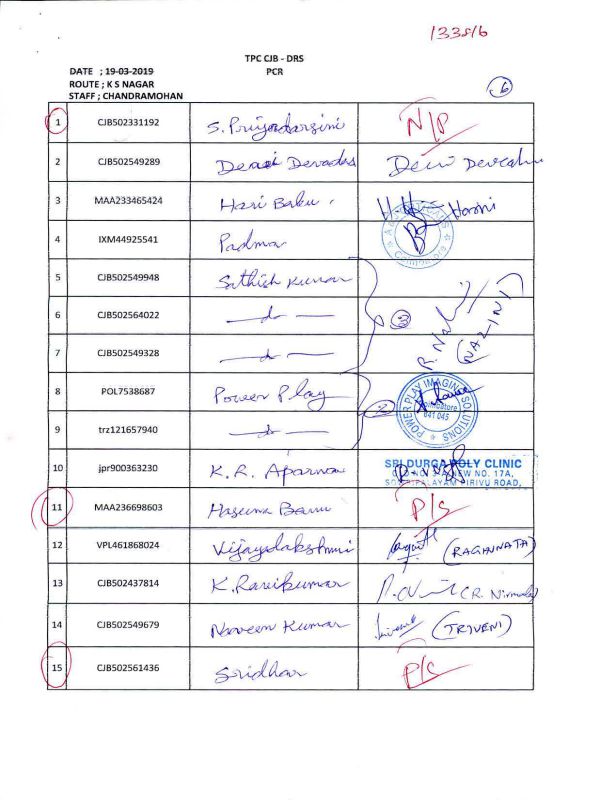 133816
TPC CJB - DRS
DATE ; 19-03-2019 PCR
ROUTE ; K S NAGAR
STAFF ; CHANDRAMOHAN
6
1 CJB502331192 S. Priyadarsini N/P
2 CJB502549289 Devi Devadas Devi
3 MAA233465424 Hari Babu
4 IXM44925541 Padma
5 CJB502549948 Sathish Kumar
6 CJB502564022 — do — 3 R. (NAZINI)
7 CJB502549328 — do —
8 POL7538687 Power Play POWER PLAY IMAGING SOLUTIONS Coimbatore 641 045
9 trz121657940 — do — 2
10 jpr900363230 K.R. Aparna SRI DURGA POLY CLINIC NEW NO. 17A, PIRIVU ROAD,
11 MAA236698603 Hasuma Banu P/S
12 VPL461868024 Vijayalakshmi (RAGUNNATA)
13 CJB502437814 K. Ravikumar
14 CJB502549679 Naveen Kumar (TRIVENI)
15 CJB502561436 Sridhar P/S